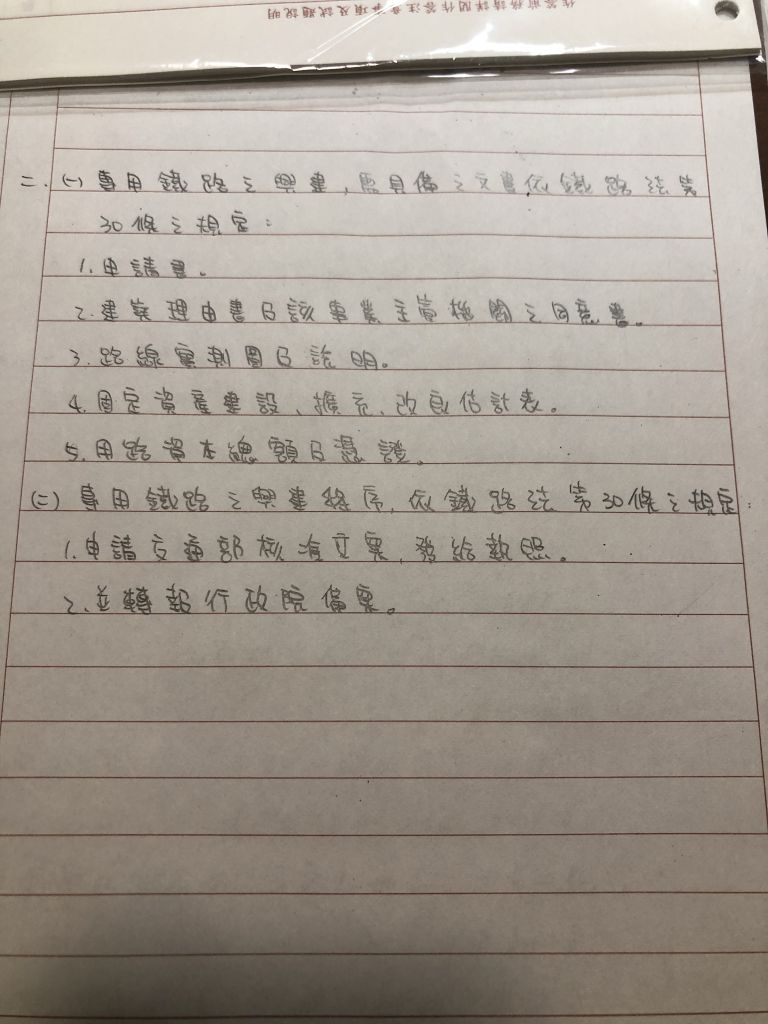 作答前務請詳閱作答注意事項及試題說明
二、(一) 專用鐵路之興建，應具備之文書依鐵路法第
30條之規定：
1.申請書。
2.建築理由書及該事業主管機關之同意書。
3.路線實測圖及說明。
4.固定資產建設、擴充、改良估計表。
5.用路資本總額及憑證。
(二) 專用鐵路之興建程序，依鐵路法第30條之規定：
1.申請交通部核准立案，發給執照。
2.並轉報行政院備案。